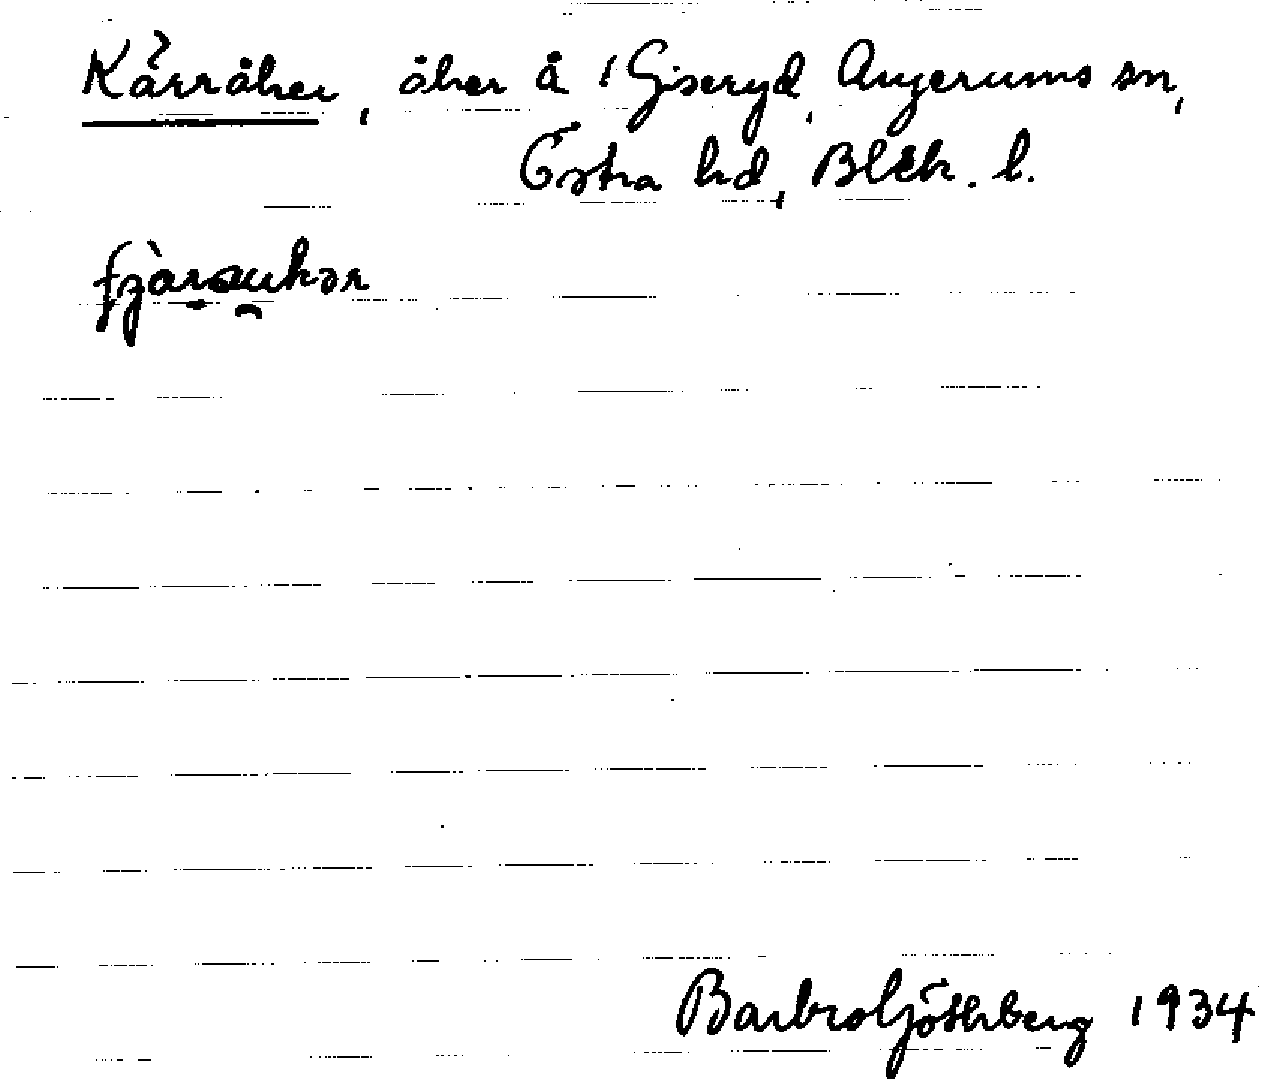 Kärråker, åker å 1 Giseryd, Augerums sn,
Östra hd, Blek. l.
Barbro Göthberg 1934